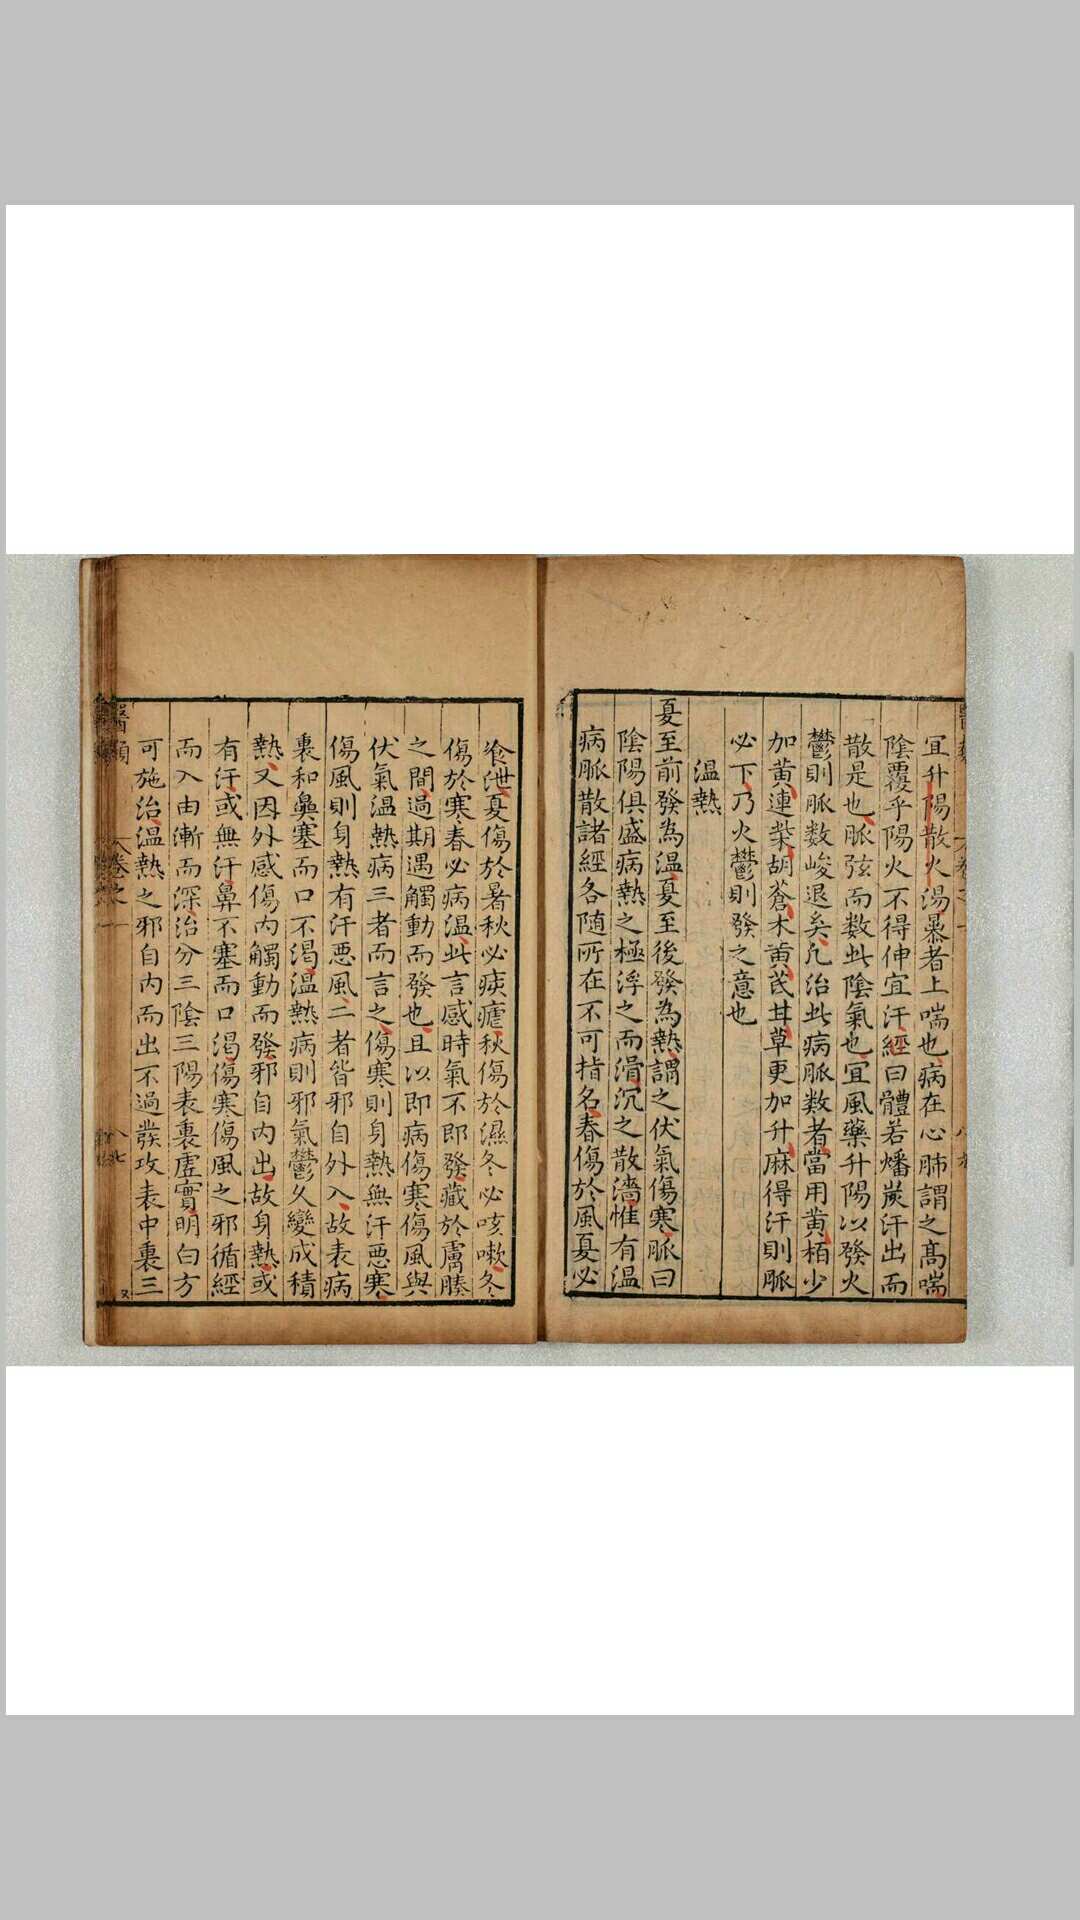 宜升陽散火湯暴者上喘也病在心肺謂之高喘
陰覆乎陽火不得伸宜汗經曰體若燔炭汗出而
散是也脈弦而數此陰氣也宜風藥升陽以發火
鬱則脈数峻退矣凡治此病脈数者當用黄栢少
加黄連柴胡蒼木黄茋甘草更加升麻得汗則脈
必下乃火鬱則發之意也
温熱
夏至前發為温夏至後發為熱謂之伏氣傷寒脈曰
陰陽俱盛病熱之極浮之而滑沉之散濇惟有温
病脈散諸經各随所在不可指名春傷於風夏必
飱泄夏傷於暑秋必痎瘧秋傷於濕冬必咳嗽冬
傷於寒春必病温此言感時氣不即發藏於膚腠
之間過期遇觸動而發也且以即病傷寒傷風與
伏氣温熱病三者而言之傷寒則身熱無汗惡寒
傷風則身熱有汗惡風二者皆邪自外入故表病
裏和鼻塞而口不渴温熱病則邪氣鬱久變成積
熱又因外感傷内觸動而發邪自内出故身熱或
有汗或無汗鼻不塞而口渴傷寒傷風之邪循經
而入由漸而深治分三陰三陽表裏虚實明白方
可施治温熱之邪自内而出不過發攻表中裏三
卷之一